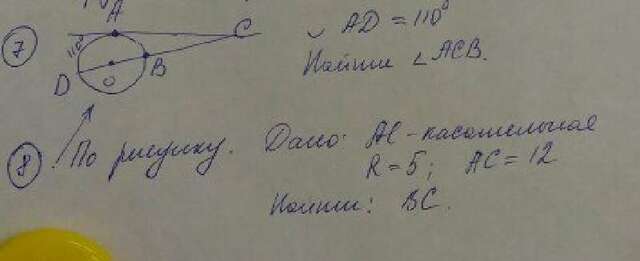 7 A C ◡ AD = 110°
110° D O B Найти ∠ACB.
8 По рисунку. Дано: AC - касательная
R = 5; AC = 12
Найти: BC.